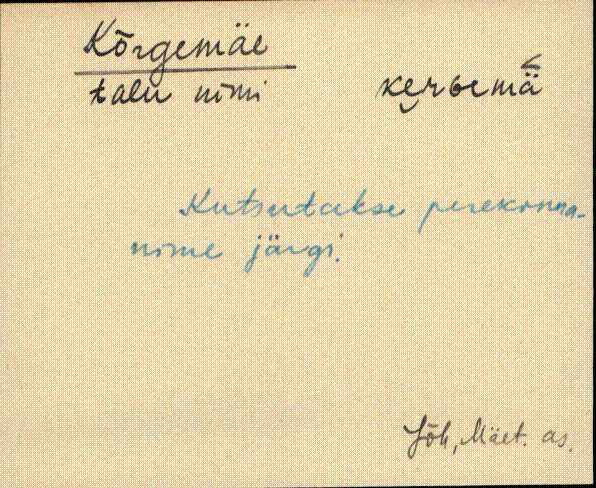 Kõrgemäe
talu nimi kerɢemä
Kutsutakse perekonna-
nime järgi.
Jõh, Mäet. as.